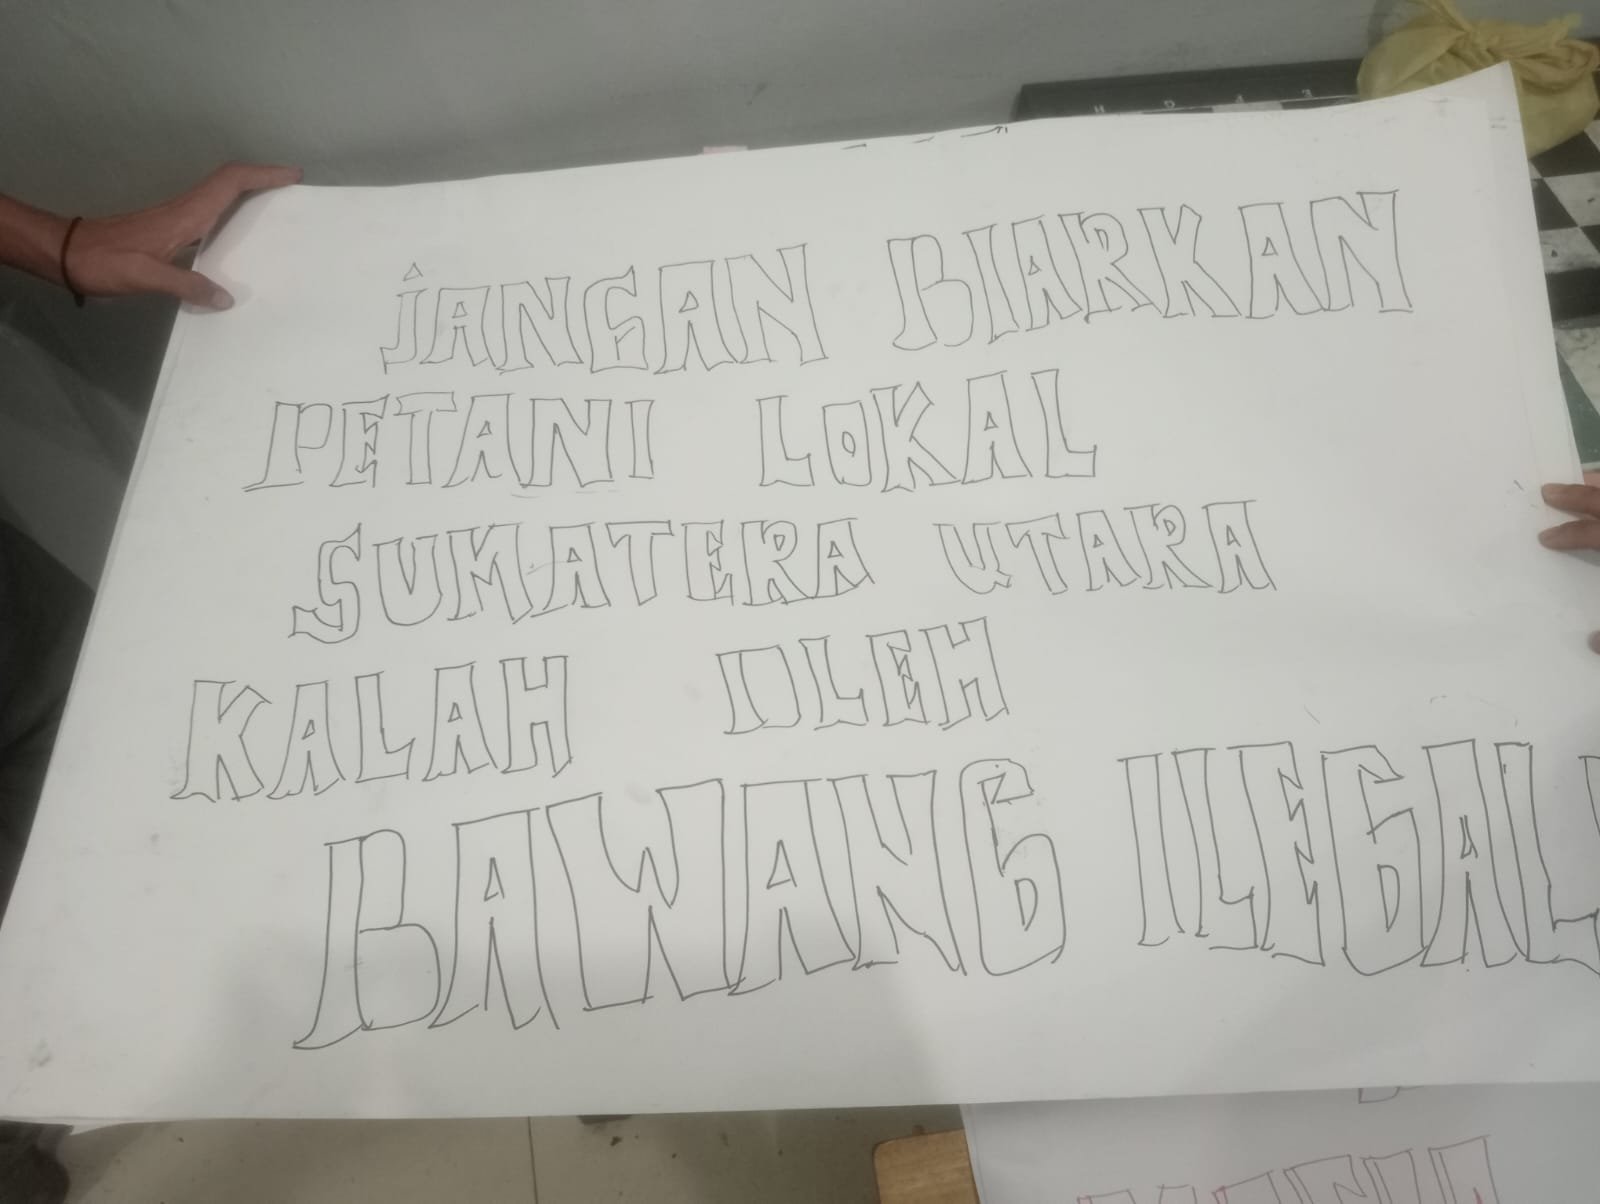 JANGAN BIARKAN
PETANI LOKAL
SUMATERA UTARA
KALAH OLEH
BAWANG ILEGAL